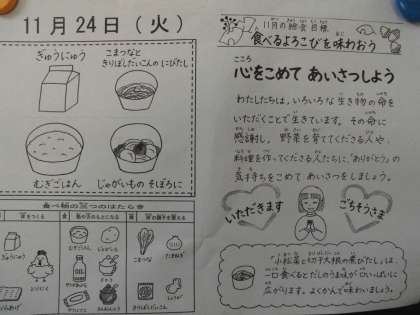 11月24日（火）
ぎゅうにゅう
こまつなと
きりぼしだいこんのにびたし
むぎごはん
じゃがいものそぼろに
食べ物の三つのはたらき
ぎゅうにゅう
とりにく
むぎごはん
じゃがいも
こまつな
たまねぎ
11月の給食目標
食べるよろこびを味わおう
こころ
心をこめて あいさつしよう
わたしたちは、いろいろな生き物の命を
いただくことで生きています。その命に
感謝し、野菜を育ててくださる人や、
料理を作ってくださる人たちに、「ありがとう」の
気持ちをこめて あいさつをしましょう。
いただきます
ごちそうさま
「小松菜と切干大根の煮びたし」は、
一口食べるとだしのうま味が口いっぱいに
広がります。よくかんで味わいましょう。